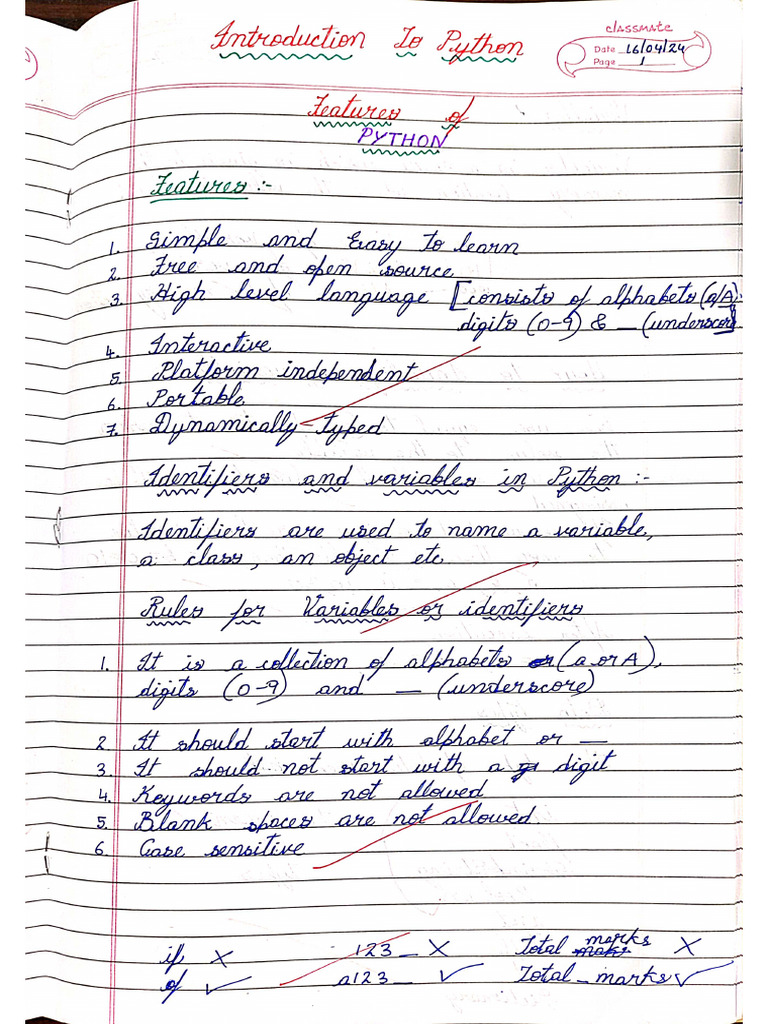 Introduction To Python
classmate
Date 16/04/24
Page 1
Features of
PYTHON
Features :-
1. Simple and Easy to learn
2. Free and open source
3. High level language [consists of alphabets (a/A):
digits (0-9) & _ (underscore)
4. Interactive
5. Platform independent
6. Portable
7. Dynamically-typed
Identifiers and variables in Python :-
Identifiers are used to name a variable,
a class, an object etc
Rules for Variables or identifiers
1. It is a collection of alphabets or (a or A),
digits (0-9) and _ (underscore)
2. It should start with alphabet or _
3. It should not start with a digit
4. Keywords are not allowed
5. Blank spaces are not allowed.
6. Case sensitive
if X 123_ X Total marks X
of ✓ a123_ ✓ Total_marks ✓